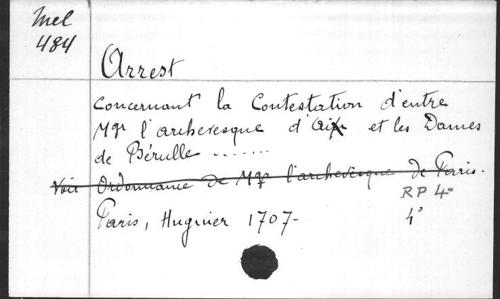 Mel
484
Arrest
Concernant la Contestation d'entre
Mgr l'archevesque d'Aix et les Dames
de Bérulle .......
Voir Ordonnance de Mgr l'archevêque de Paris.
RP 4°
Paris, Huguier 1707-
4°